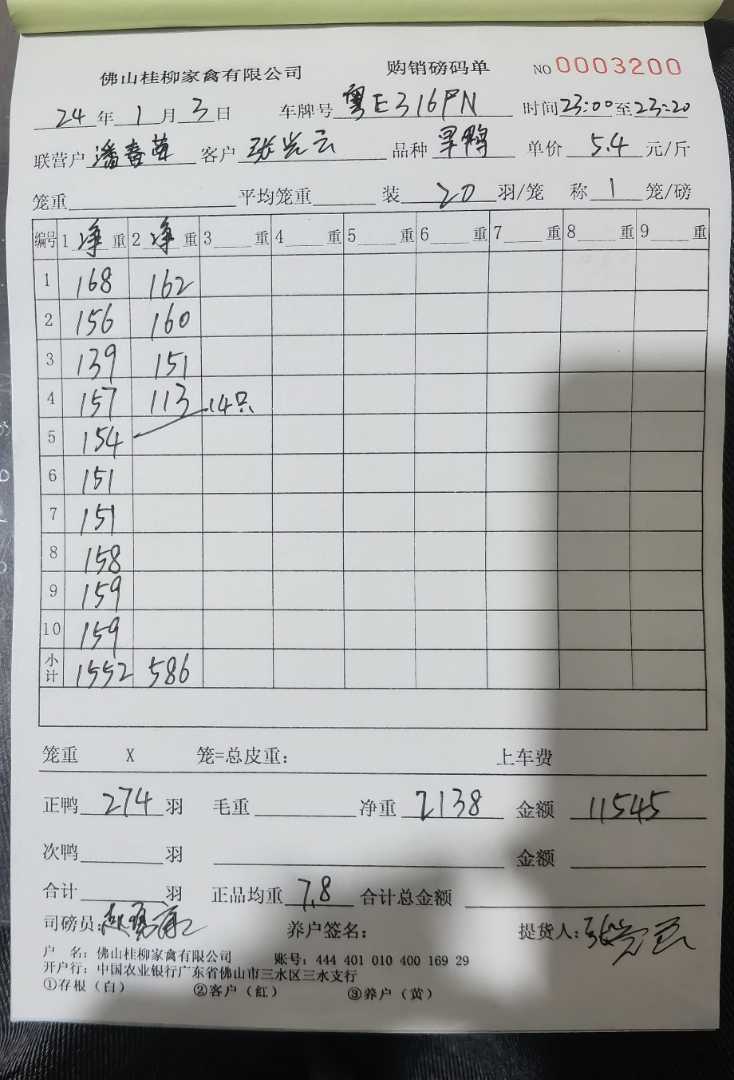 佛山桂柳家禽有限公司 购销磅码单 NO 0003200
24年1月3日 车牌号 粤E316PN 时间23:00至23:20
联营户 潘春草 客户 张光云 品种 旱鸭 单价 5.4 元/斤
笼重 平均笼重 装 20 羽/笼 称 1 笼/磅
编号 1 净 重 2 净 重 3 重 4 重 5 重 6 重 7 重 8 重 9 重
1 168 162
2 156 160
3 139 151
4 157 113 14只
5 154
6 151
7 151
8 158
9 159
10 159
小计 1552 586
笼重 X 笼=总皮重: 上车费
正鸭 274 羽 毛重 净重 2138 金额 11545
次鸭 羽 金额
合计 羽 正品均重 7.8 合计总金额
司磅员: 养户签名: 提货人: 张光云
户 名: 佛山桂柳家禽有限公司 账号: 444 401 010 400 169 29
开户行: 中国农业银行广东省佛山市三水区三水支行
①存根（白） ②客户（红） ③养户（黄）